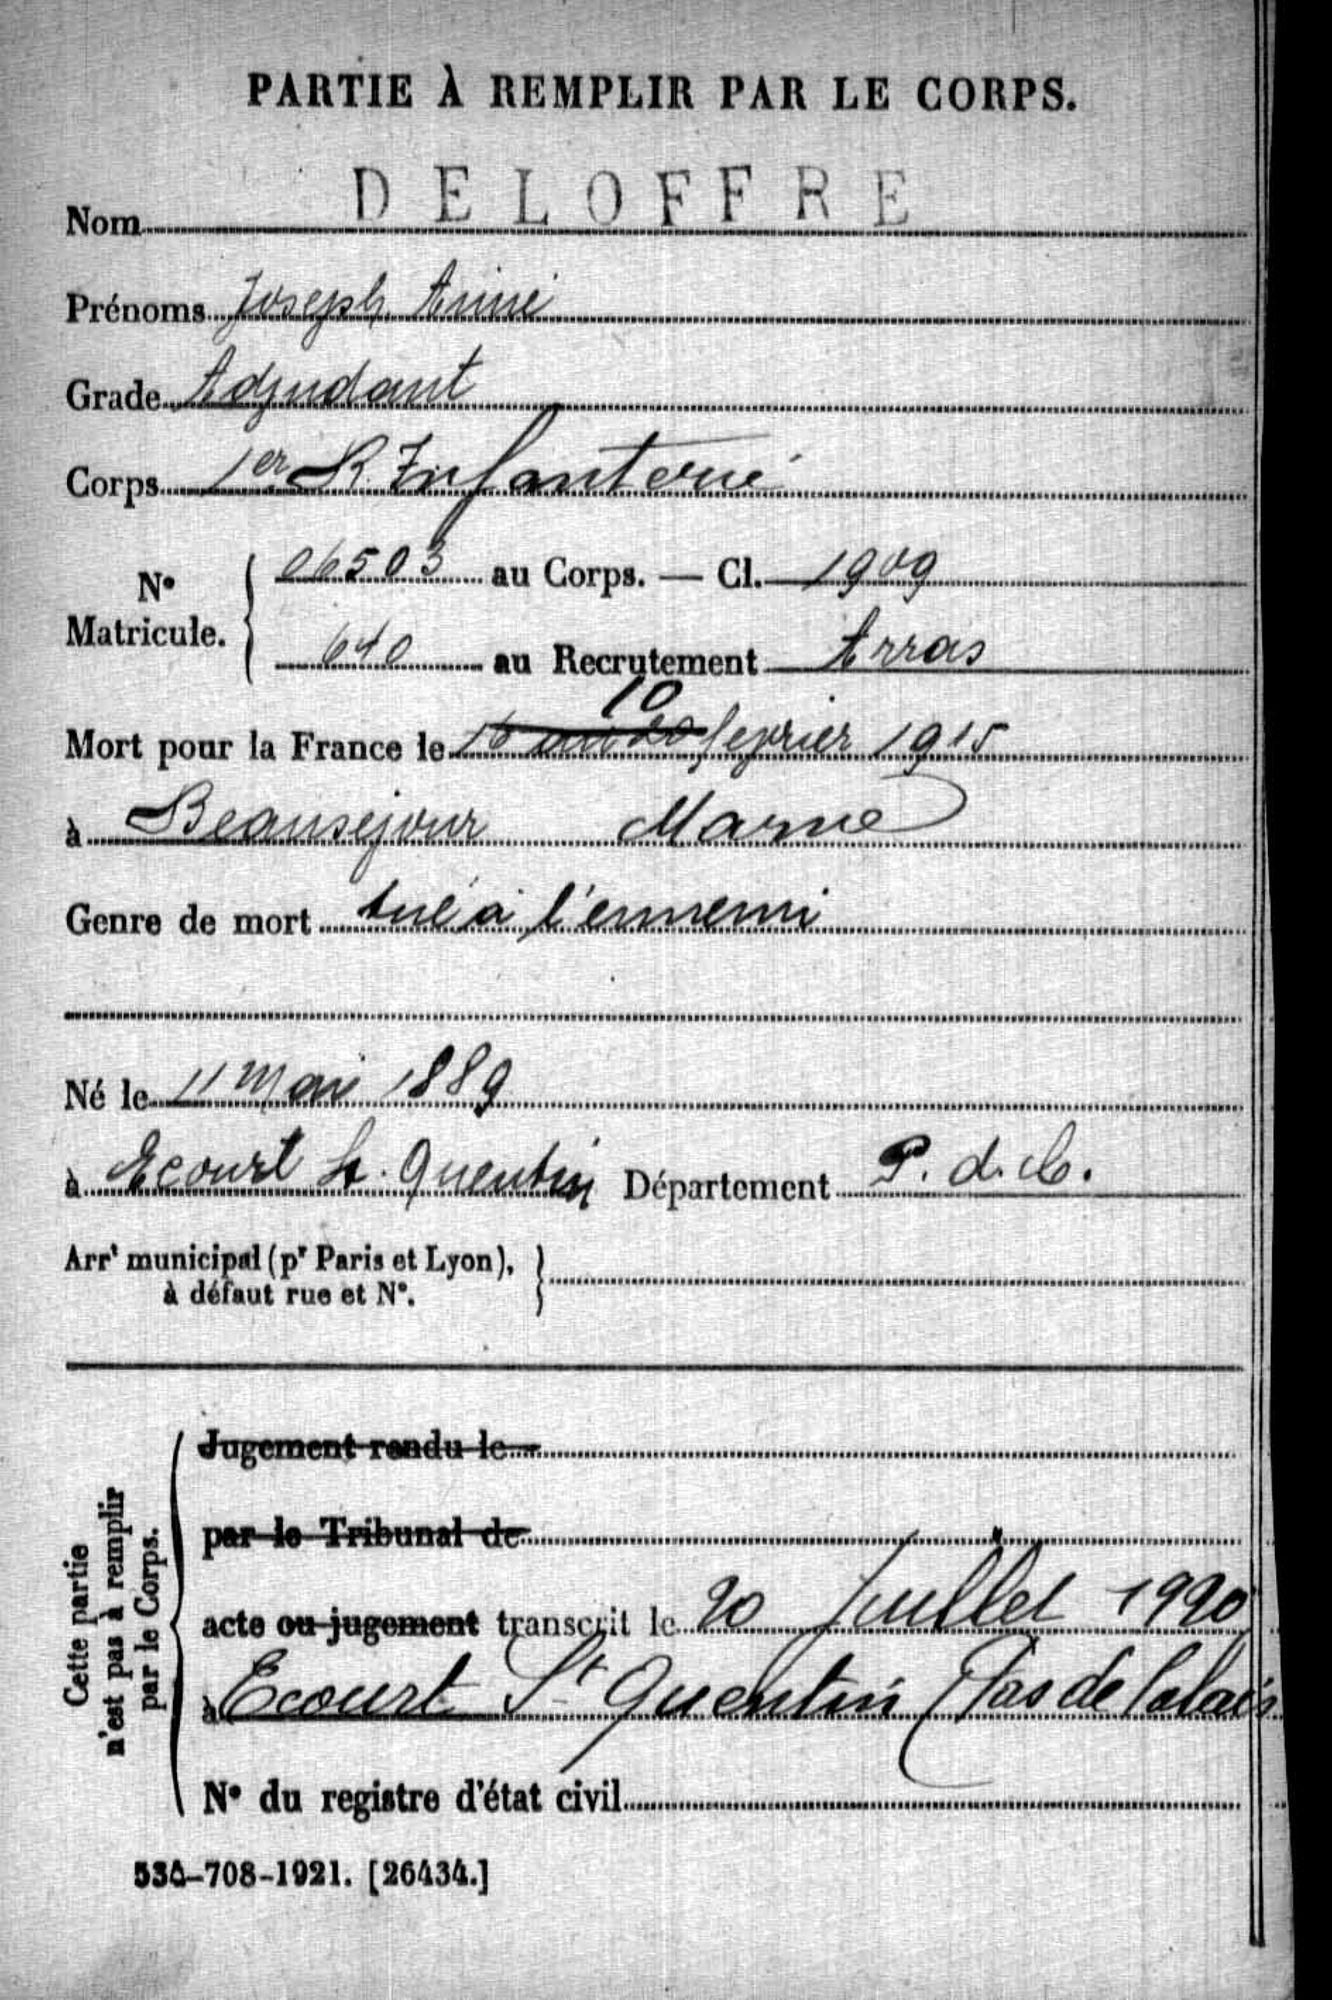 PARTIE À REMPLIR PAR LE CORPS.
Nom DELOFFRE
Prénoms Joseph Aimé
Grade Adjudant
Corps 1er R. Infanterie
N° Matricule. 06503 au Corps. — Cl. 1909
640 au Recrutement Arras
10
Mort pour la France le 16 au 20 fevrier 1915
à Beausejour Marne
Genre de mort tué à l'ennemi
Né le 11 Mai 1889
à Ecourt St. Quentin Département P. d. C.
Arrt municipal (pr Paris et Lyon),
à défaut rue et N°.
Cette partie
n'est pas à remplir
par le Corps.
Jugement rendu le
par le Tribunal de
acte ou jugement transcrit le 20 Juillet 1920
à Ecourt St Quentin (Pas de Calais
N° du registre d'état civil
534-708-1921. [26434.]